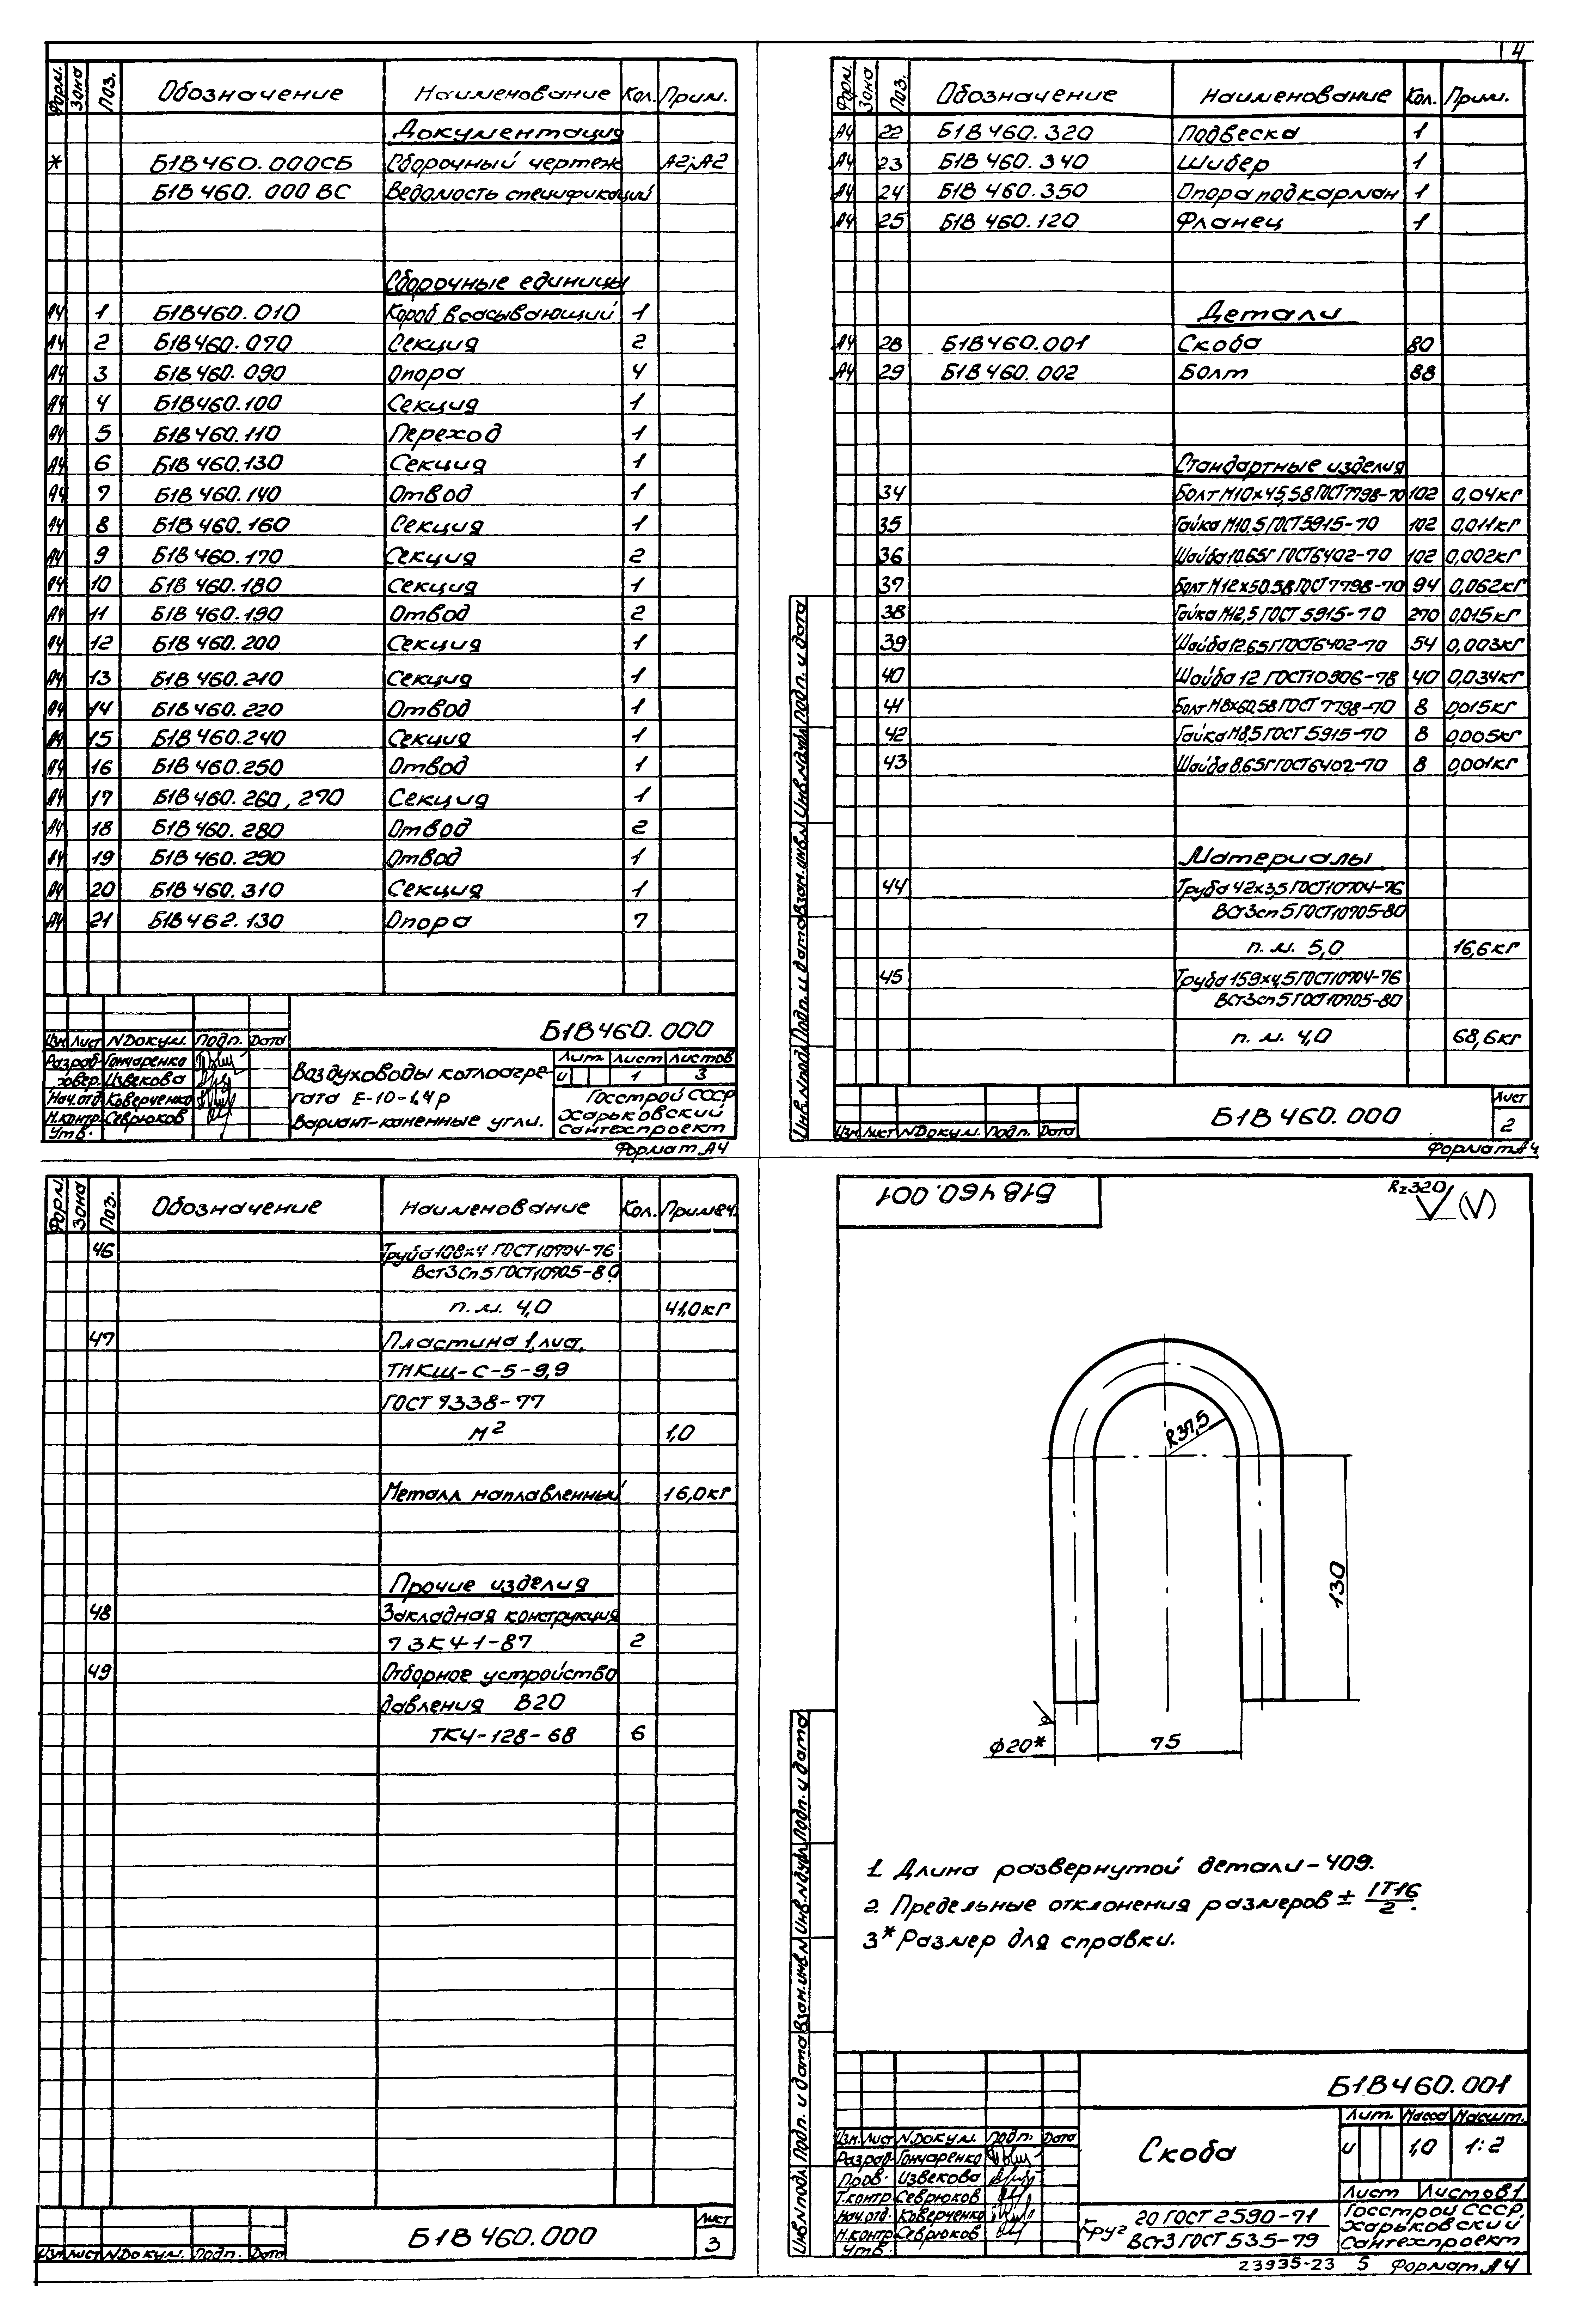 4
Форм. Зона Поз. Обозначение Наименование Кол. Прим.
Документация
* Б1В460.000СБ Сборочный чертеж А2;А2
Б1В460.000 ВС Ведомость спецификаций
Сборочные единицы
А4 1 Б1В460.010 Короб всасывающий 1
А4 2 Б1В460.070 Секция 2
А4 3 Б1В460.090 Опора 4
А4 4 Б1В460.100 Секция 1
А4 5 Б1В460.110 Переход 1
А4 6 Б1В460.130 Секция 1
А4 7 Б1В460.140 Отвод 1
А4 8 Б1В460.160 Секция 1
А4 9 Б1В460.170 Секция 2
А4 10 Б1В460.180 Секция 1
А4 11 Б1В460.190 Отвод 2
А4 12 Б1В460.200 Секция 1
А4 13 Б1В460.210 Секция 1
А4 14 Б1В460.220 Отвод 1
А4 15 Б1В460.240 Секция 1
А4 16 Б1В460.250 Отвод 1
А4 17 Б1В460.260, 270 Секция 1
А4 18 Б1В460.280 Отвод 2
А4 19 Б1В460.290 Отвод 1
А4 20 Б1В460.310 Секция 1
А4 21 Б1В462.130 Опора 7
Б1В460.000
Изм. Лист N Докум. Подп. Дата
Разраб. Гончаренко
Провер. Извекова
Нач.отд. Коверченко
Н.контр. Севрюков
Утв.
Воздуховоды котлоагре-
гата Е-10-1,4р
Вариант-каменные угли.
Лит. Лист Листов
и 1 3
Госстрой СССР
Харьковский
Сантехпроект
Формат А4
Форм. Зона Поз. Обозначение Наименование Кол. Прим.
А4 22 Б1В460.320 Подвеска 1
А4 23 Б1В460.340 Шибер 1
А4 24 Б1В460.350 Опора под карман 1
А4 25 Б1В460.120 Фланец 1
Детали
А4 28 Б1В460.001 Скоба 80
А4 29 Б1В460.002 Болт 88
Стандартные изделия
34 Болт М10х45,58 ГОСТ7798-70 102 0,04кг
35 Гайка М10.5 ГОСТ5915-70 102 0,011кг
36 Шайба 10.65Г ГОСТ6402-70 102 0,002кг
37 Болт М12х50.58 ГОСТ7798-70 94 0,062кг
38 Гайка М12,5 ГОСТ 5915-70 270 0,015кг
39 Шайба 12.65Г ГОСТ6402-70 54 0,003кг
40 Шайба 12 ГОСТ10906-78 40 0,034кг
41 Болт М8х60.58 ГОСТ 7798-70 8 0,015кг
42 Гайка М8,5 ГОСТ 5915-70 8 0,005кг
43 Шайба 8.65Г ГОСТ6402-70 8 0,001кг
Материалы
44 Труба 42х3,5 ГОСТ10704-76
ВСт3сп5 ГОСТ10705-80
п.м. 5,0 16,6кг
45 Труба 159х4,5 ГОСТ10704-76
ВСт3сп5 ГОСТ10705-80
п.м. 4,0 68,6кг
Инв.N подл. Подп. и дата Взам.инв.N Инв.N дубл. Подп. и дата
Изм. Лист N Докум. Подп. Дата
Б1В460.000
Лист
2
Формат А4
Форм. Зона Поз. Обозначение Наименование Кол. Примеч.
46 Труба 108х4 ГОСТ10704-76
Вст3Сп5 ГОСТ10705-80
п.м. 4,0 41,0кг
47 Пластина 1,лист,
ТМКЩ-С-5-9,9
ГОСТ 7338-77
м² 1,0
Металл наплавленный 16,0кг
Прочие изделия
48 Закладная конструкция
7 ЗК4-1-87 2
49 Отборное устройство
давления В20
ТК4-128-68 6
Изм. Лист N Докум. Подп. Дата
Б1В460.000
Лист
3
Б1В460.001
Rz320 (√)
R37,5
130
75
ф20*
1. Длина развернутой детали-409.
2. Предельные отклонения размеров ± IT16/2.
3* Размер для справки.
Инв.N подл. Подп. и дата Взам.инв.N Инв.N дубл. Подп. и дата
Б1В460.001
Изм. Лист N. Докум. Подп. Дата
Разраб. Гончаренко
Пров. Извекова
Т.контр. Севрюков
Нач.отд. Коверченко
Н.контр. Севрюков
Утв.
Скоба
Лит. Масса Масшт.
и 1,0 1:2
Лист Листов 1
Круг 20 ГОСТ 2590-71
Вст3 ГОСТ 535-79
Госстрой СССР
Харьковский
Сантехпроект
23935-23 5 Формат А4